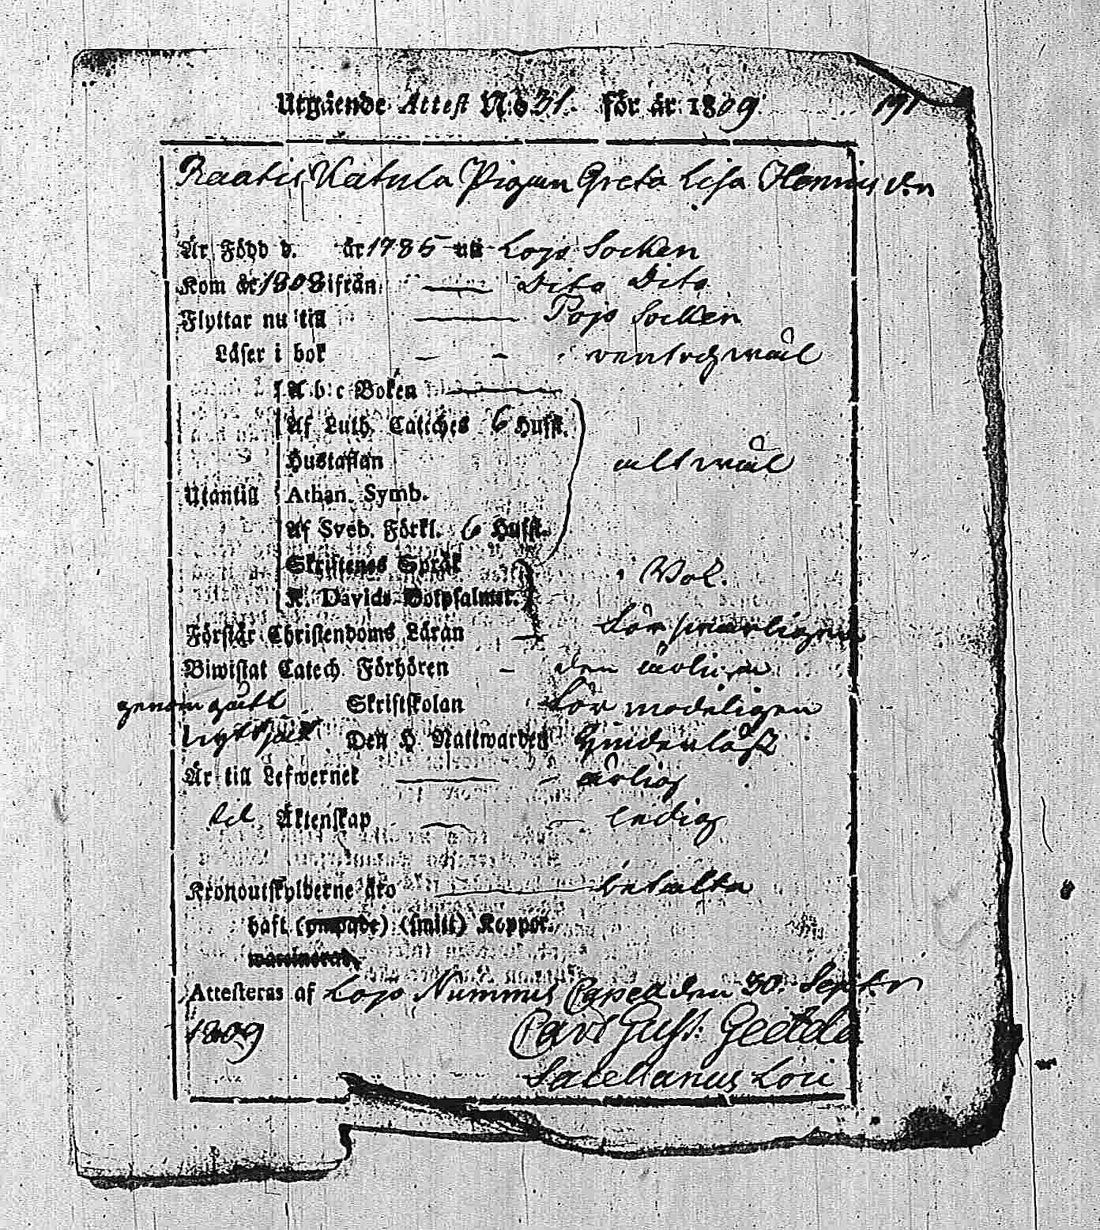 Utgående Attest N:o 31. för år 1809. 191
Raatis Kätula Pigan Greta Lisa Henrics d:r
Är Född d. år 1785 uti Lojo Socken
Kom år 1808 ifrån Dito Dito
Flyttar nu till Pojo Socken
Läser i bok rent och wäl
A b c Boken
Af Luth. Catches 6 Hufst.
Hustaflan alt wäl
Utantill Athan. Symb.
Af Sveb. Förkl. 6 Hufst.
Skriftenes Språk
K. Davids Botpsalmer.
Förstår Christendoms Läran försvarligen
Biwistat Catech Förhören den årlig
genomgått Skriftskolan
Den H. Nattwarden
Är till Lefwernet ärlig
til Äktenskap ledig
Kronoutskylderne äro betalta
haft (ympade) (smitt) Koppor.
waccinerad.
Attesteras af Lojo Nummis Capell den 30. Septbr
1809 Carl Gust. Geitda
Sacellanus Loci